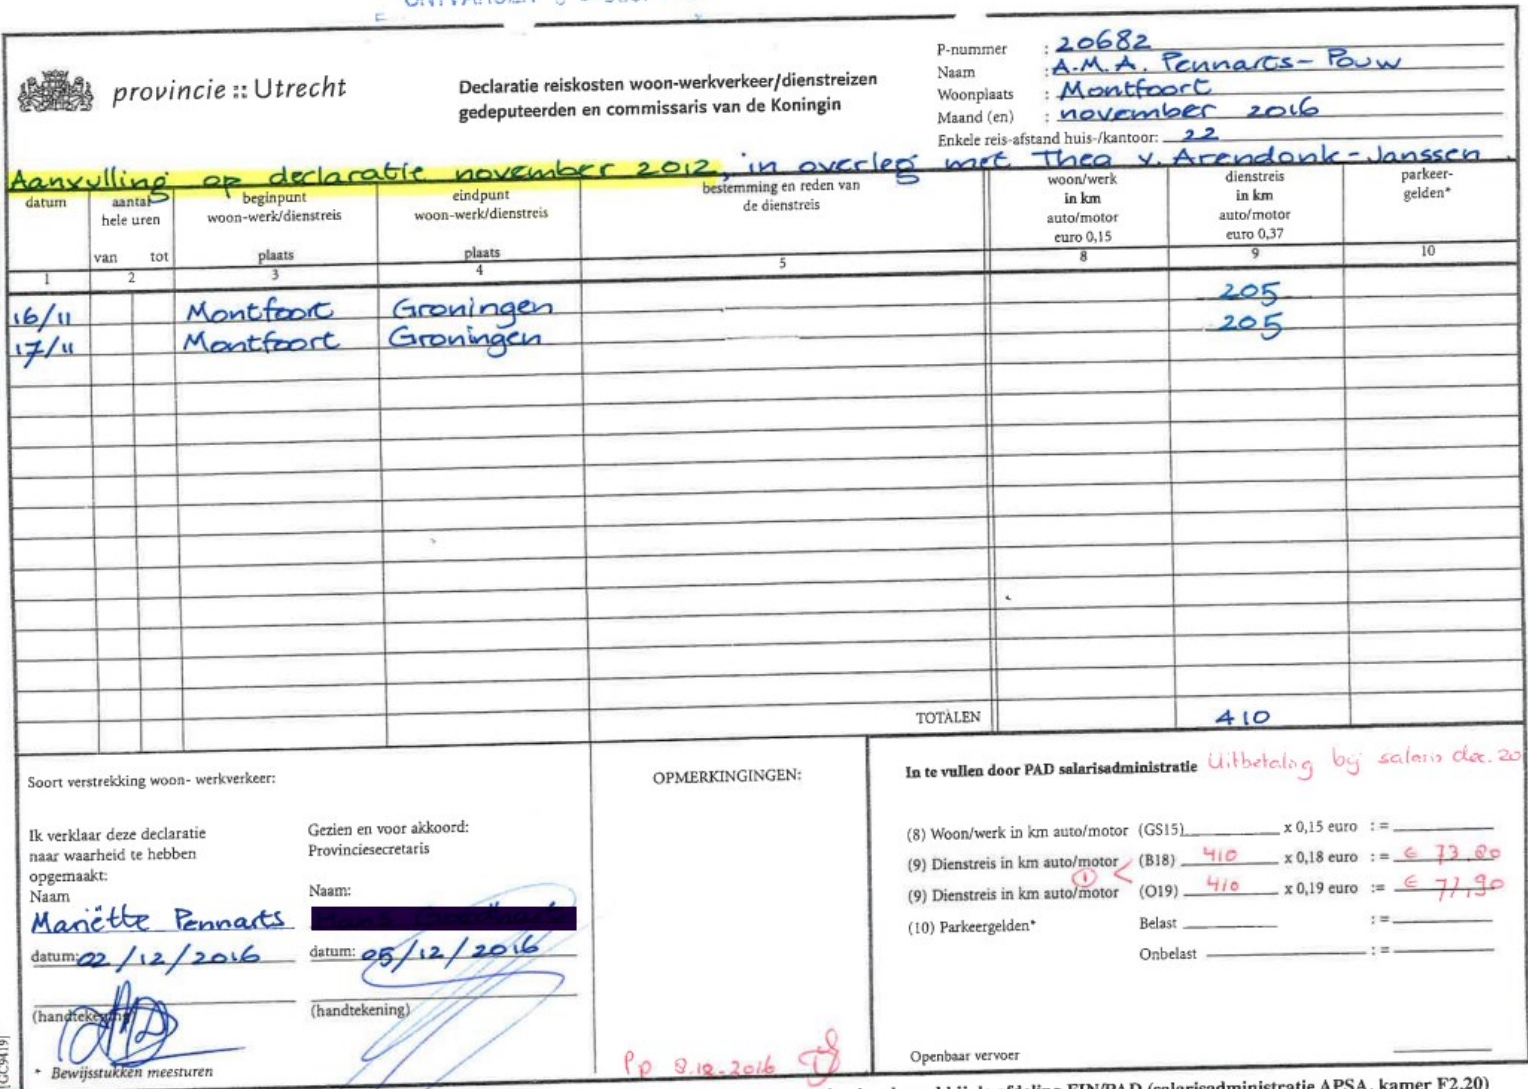 provincie :: Utrecht
Declaratie reiskosten woon-werkverkeer/dienstreizen
gedeputeerden en commissaris van de Koningin
P-nummer : 20682
Naam : A.M.A. Pennarts-Pouw
Woonplaats : Montfoort
Maand (en) : november 2016
Enkele reis-afstand huis-/kantoor: 22
Aanvulling op declaratie november 2012, in overleg met Thea v. Arendonk-Janssen.
datum
aantal hele uren
van tot
beginpunt
woon-werk/dienstreis
plaats
eindpunt
woon-werk/dienstreis
plaats
bestemming en reden van
de dienstreis
woon/werk
in km
auto/motor
euro 0,15
dienstreis
in km
auto/motor
euro 0,37
parkeer-
gelden*
1 2 3 4 5 8 9 10
16/11 Montfoort Groningen 205
17/11 Montfoort Groningen 205
TOTALEN 410
Soort verstrekking woon- werkverkeer:
Ik verklaar deze declaratie
naar waarheid te hebben
opgemaakt:
Naam
Mariëtte Pennarts
datum: 02/12/2016
(handtekening)
* Bewijsstukken meesturen
Gezien en voor akkoord:
Provinciesecretaris
Naam:
datum: 05/12/2016
(handtekening)
OPMERKINGINGEN:
Pp 8.12.2016
In te vullen door PAD salarisadministratie Uitbetaling bij salaris dec. 20
(8) Woon/werk in km auto/motor (GS15) x 0,15 euro : =
(9) Dienstreis in km auto/motor (B18) 410 x 0,18 euro : = € 73,80
(9) Dienstreis in km auto/motor (O19) 410 x 0,19 euro := € 77,90
1
(10) Parkeergelden* Belast : =
Onbelast : =
Openbaar vervoer
GC9419]
FIN/PAD (salarisadministratie APSA, kamer F2.20)